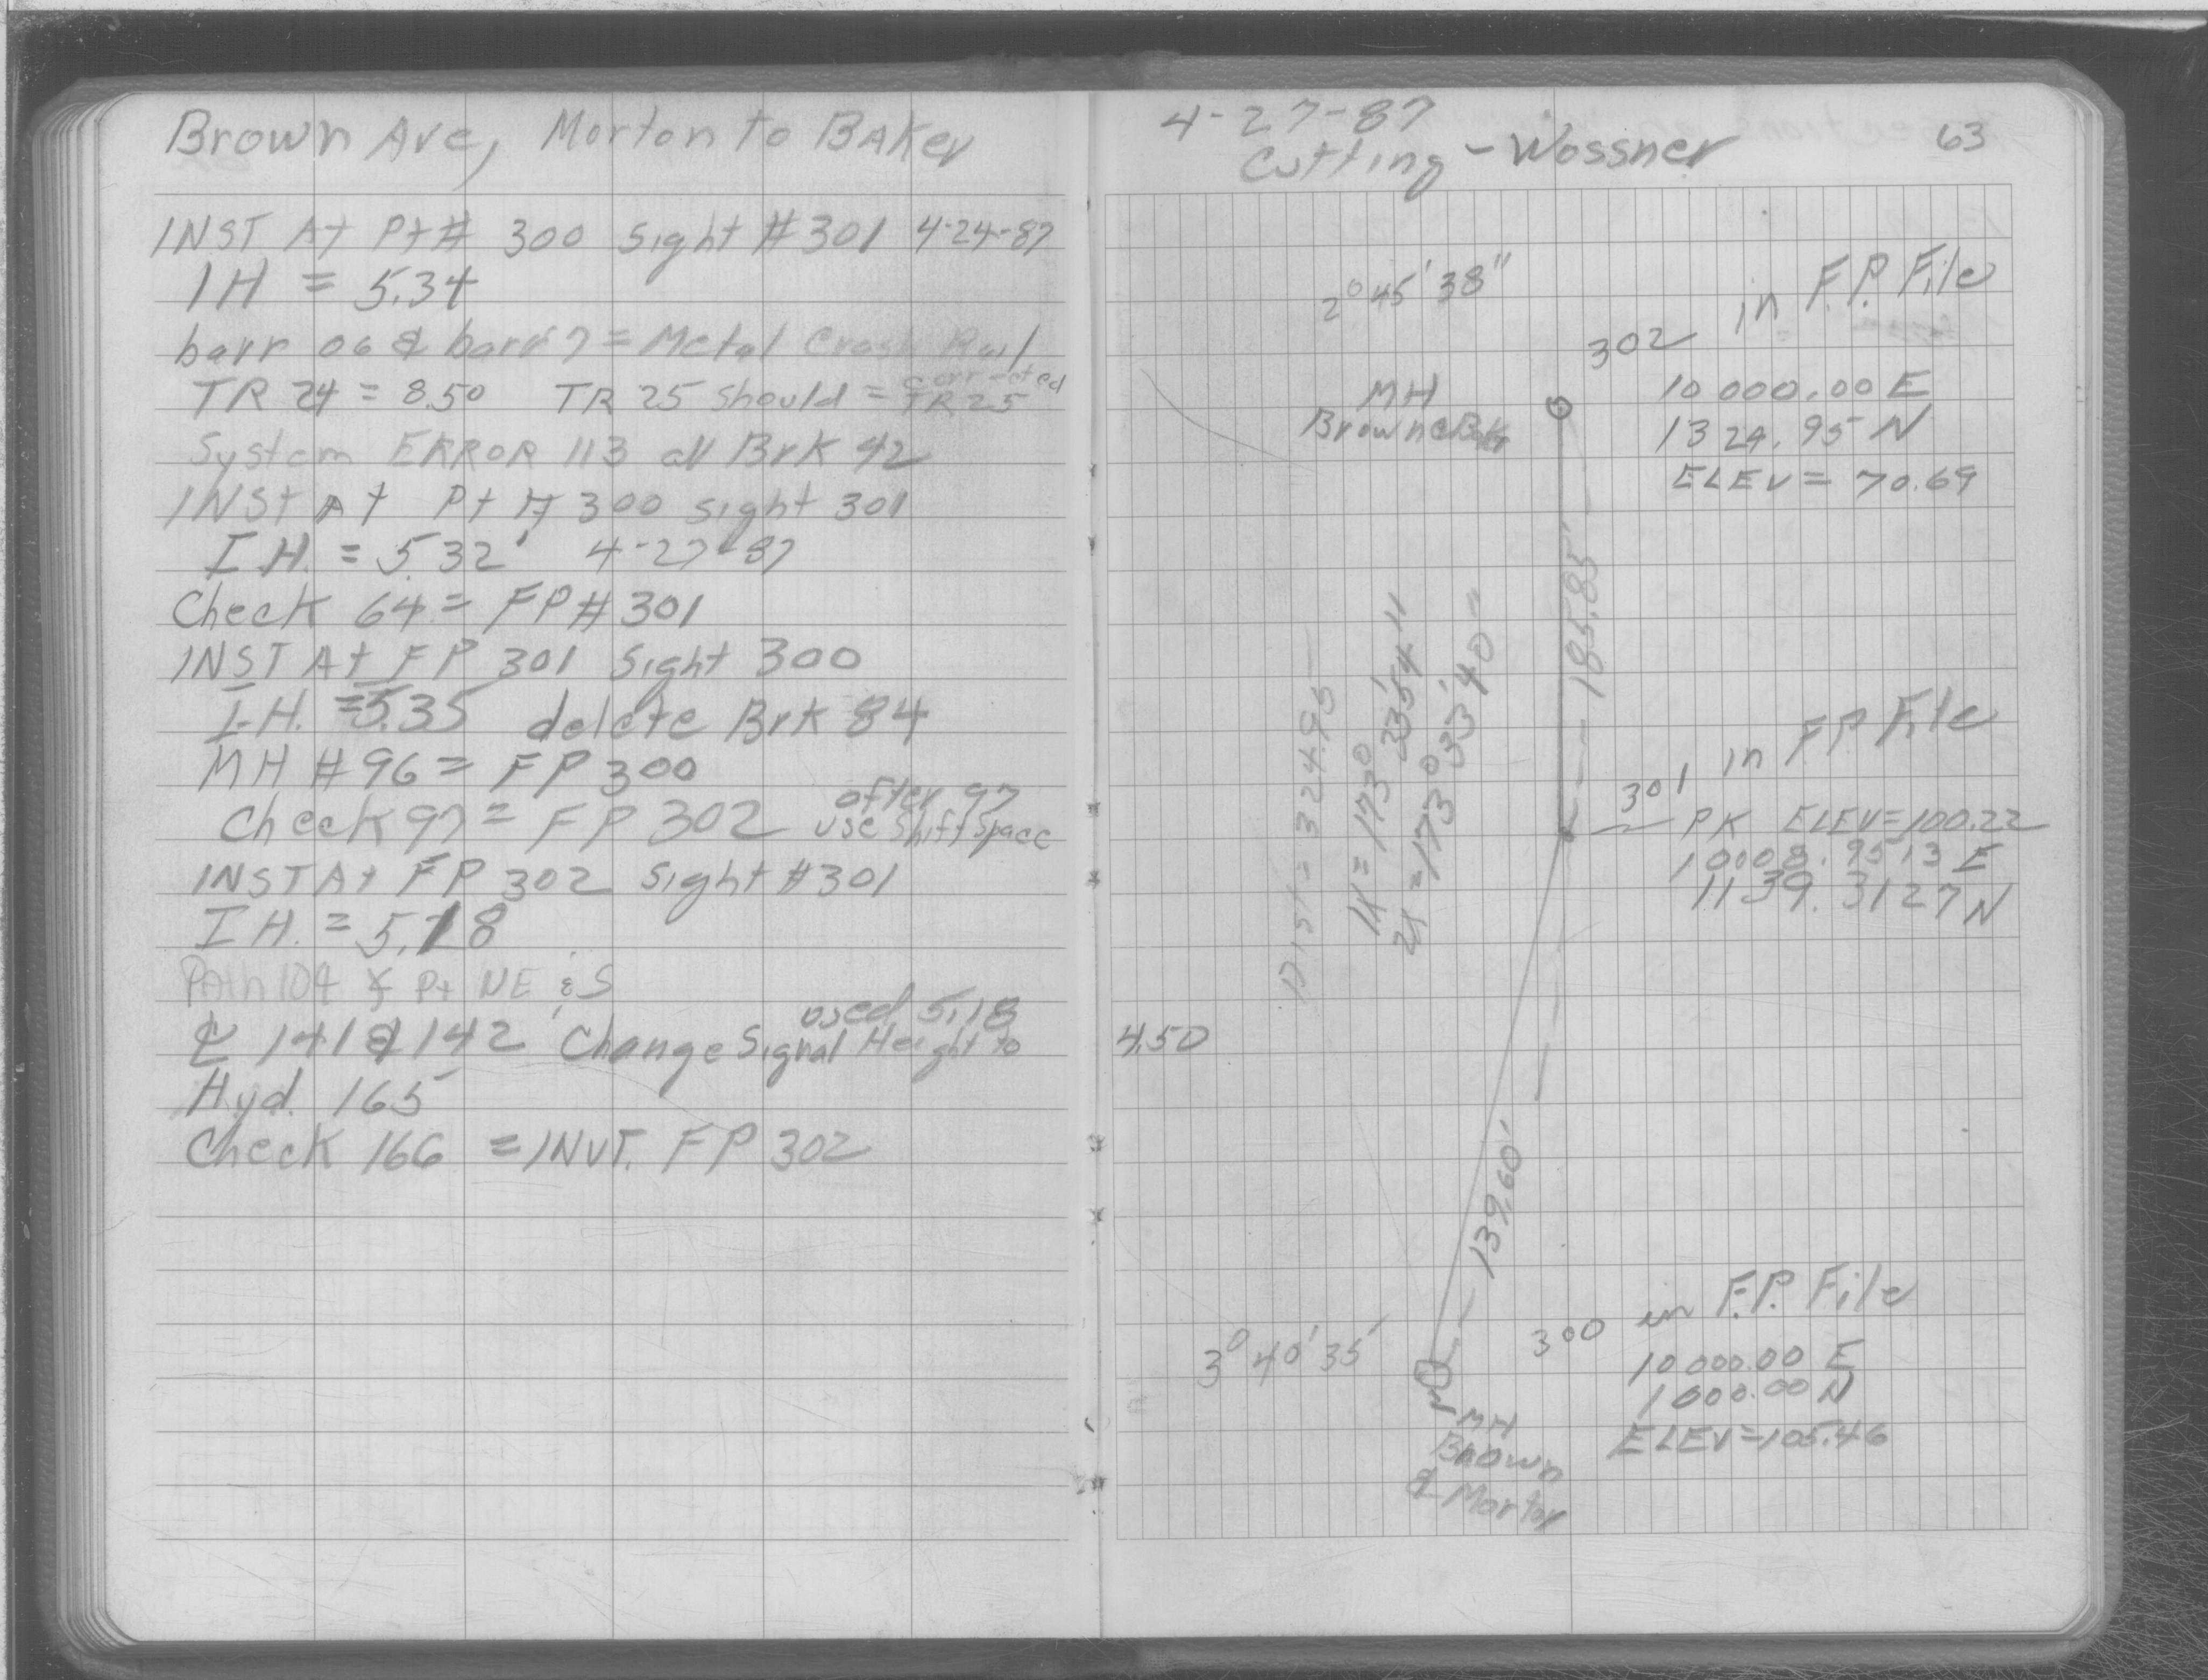 Brown Ave, Morton to BAKer
INST At Pt# 300 Sight #301 4-24-87
IH = 5.34
barr 06 & barr 7 = Metal Crash Rail
TR 24 = 8.50 TR 25 should = corrected TR 25
System ERROR 113 all Brk 42
INSt At Pt # 300 sight 301
I.H. = 5.32' 4-27-87
Check 64 = FP # 301
INST At FP 301 Sight 300
I.H. = 5.35 delete Brk 84
MH # 96 = FP 300
Check 97 = FP 302 after 97 use Shift Space
INST At FP 302 Sight #301
I.H. = 5.18
PAth 104 & Pt NE & S
℄ 141 & 142 Change Signal Height to 4.50
used 5.18
Hyd. 165
Check 166 = INVT. FP 302
4-27-87
Cutting - Wossner
63
2° 45' 38"
302 in F.P. File
MH
Brown & Bak
10 000.00 E
1324.95 N
ELEV = 70.69
185.85'
Dist = 324.95
1X = 173° 33' 54"
2X = 173° 33' 40"
301 in F.P. File
PK ELEV = 100.22
10008.9513 E
1139.3127 N
139.60'
3° 40' 35"
300 in F.P. File
10 000.00 E
1 000.00 N
ELEV = 105.46
MH
Brown
& Morton